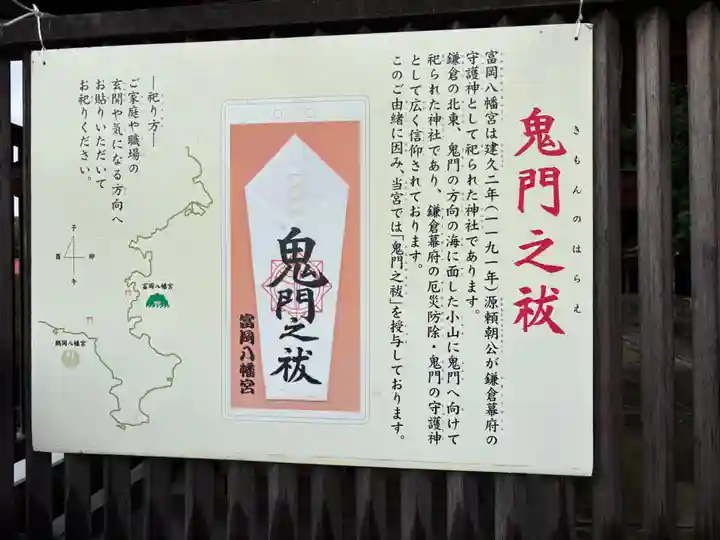 鬼門之祓
きもんのはらえ
富岡八幡宮は建久二年(一一九一年)源頼朝公が鎌倉幕府の
守護神として祀られた神社であります。
鎌倉の北東、鬼門の方向の海に面した小山に鬼門へ向けて
祀られた神社であり、鎌倉幕府の厄災防除・鬼門の守護神
として広く信仰されております。
このご由緒に因み、当宮では「鬼門之祓」を授与しております。
鬼門之祓
富岡八幡宮
―祀り方―
ご家庭や職場の
玄関や気になる方向へ
お貼りいただいて
お祀りください。
子
卯
酉
午
富岡八幡宮
鶴岡八幡宮